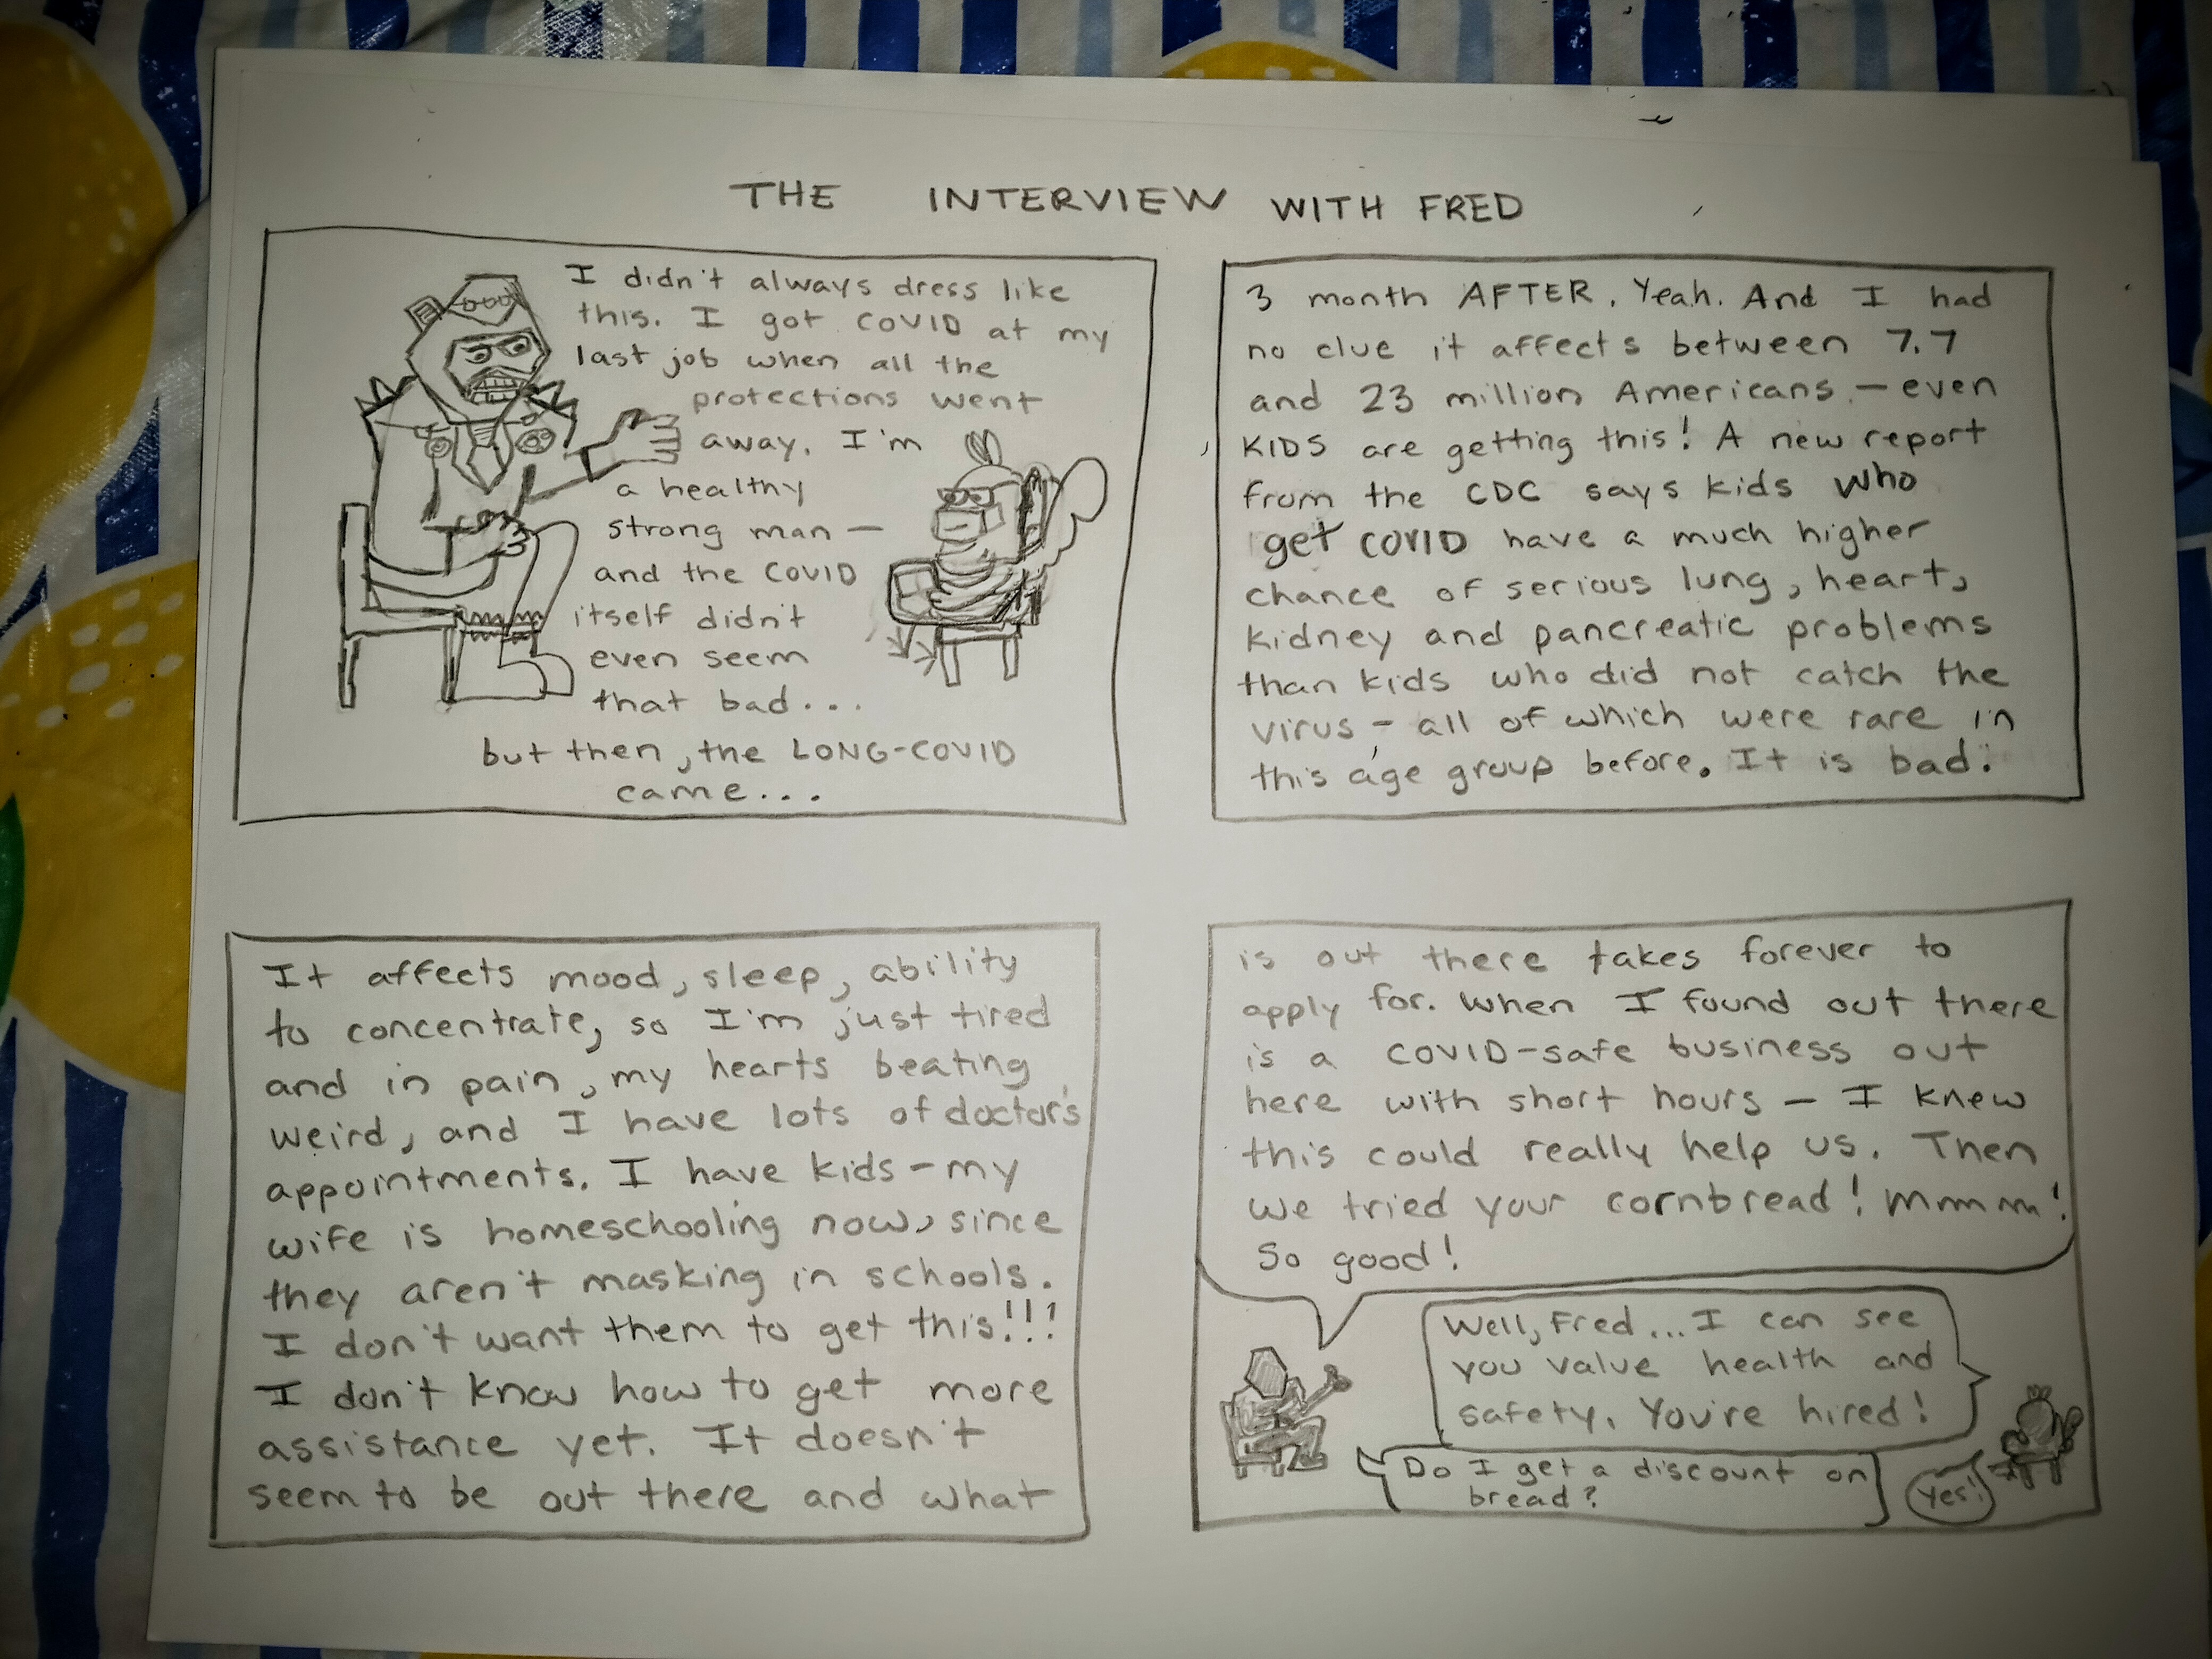 THE INTERVIEW WITH FRED
I didn't always dress like
this. I got COVID at my
last job when all the
protections went
away. I'm
a healthy
strong man —
and the COVID
itself didn't
even seem
that bad...
but then, the LONG-COVID
came...
3 month AFTER. Yeah. And I had
no clue it affects between 7.7
and 23 million Americans. — even
KIDS are getting this! A new report
from the CDC says kids who
get COVID have a much higher
chance of serious lung, heart,
kidney and pancreatic problems
than kids who did not catch the
virus - all of which were rare in
this age group before. It is bad.
It affects mood, sleep, ability
to concentrate, so I'm just tired
and in pain, my hearts beating
weird, and I have lots of doctor's
appointments. I have kids - my
wife is homeschooling now, since
they aren't masking in schools.
I don't want them to get this!!!
I don't know how to get more
assistance yet. It doesn't
seem to be out there and what
is out there takes forever to
apply for. When I found out there
is a COVID-safe business out
here with short hours — I knew
this could really help us. Then
we tried your cornbread! Mmmm!
So good!
Well, Fred... I can see
you value health and
safety. You're hired!
Do I get a discount on
bread?
Yes!